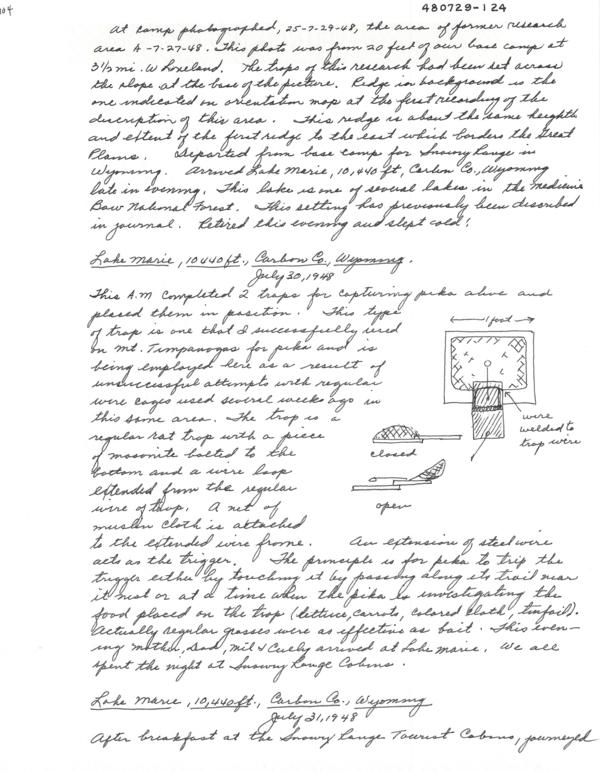 104
480729-124
At camp photographed, 25-7-29-48, the area of former research
area A-7-27-48. This photo was from 20 feet of our base camp at
3½ mi. W Loveland. The traps of this research had been set across
the slope at the base of the picture. Ridge in background is the
one indicated on orientation map at the first recording of the
description of this area. This ridge is about the same heighth
and extent of the first ridge to the east which borders the Great
Plains. Departed from base camp for Snowy Range in
Wyoming. Arrived Lake Marie, 10,440 ft, Carbon Co., Wyoming
late in evening. This lake is one of several lakes in the Medicine
Bow National Forest. This setting has previously been described
in journal. Retired this evening and slept cold!
Lake Marie, 10440 ft., Carbon Co., Wyoming.
July 30, 1948
This A.M completed 2 traps for capturing pika alive and
placed them in position. This type
of trap is one that I successfully used
on Mt. Timpanogas for pika and is
being employed here as a result of
unsuccessful attempts with regular
wire cages used several weeks ago in
this same area. The trap is a
regular rat trap with a piece
of masonite bolted to the
bottom and a wire loop
extended from the regular
wire of trap. A net of
muslin cloth is attached
to the extended wire frame. An extension of steel wire
acts as the trigger. The principle is for pika to trip the
trigger either by touching it by passing along its trail near
it nest or at a time when the pika is investigating the
food placed on the trap (lettuce, carrots, colored cloth, tinfoil).
Actually regular grasses were as effective as bait. This even-
ing Mother, Dad, Mil & Curly arrived at Lake Marie. We all
spent the night at Snowy Range Cabins.
1 foot
wire
welded to
trap wire
closed
open
Lake Marie, 10,440 ft., Carbon Co., Wyoming
July 31, 1948
After breakfast at the Snowy Range Tourist Cabins, journeyed